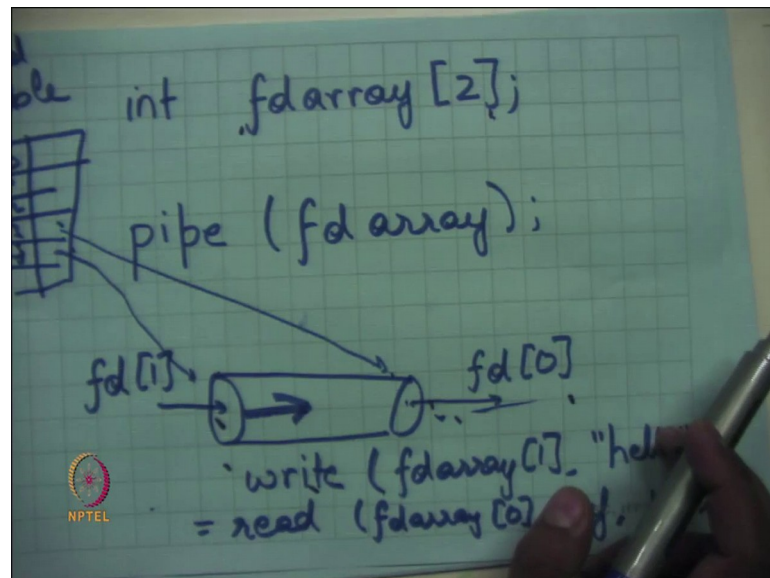 int fdarray [2];
pipe (fd array);
fd [1]
fd [0]
write (fdarray [1]
= read (fdarray [0]
NPTEL